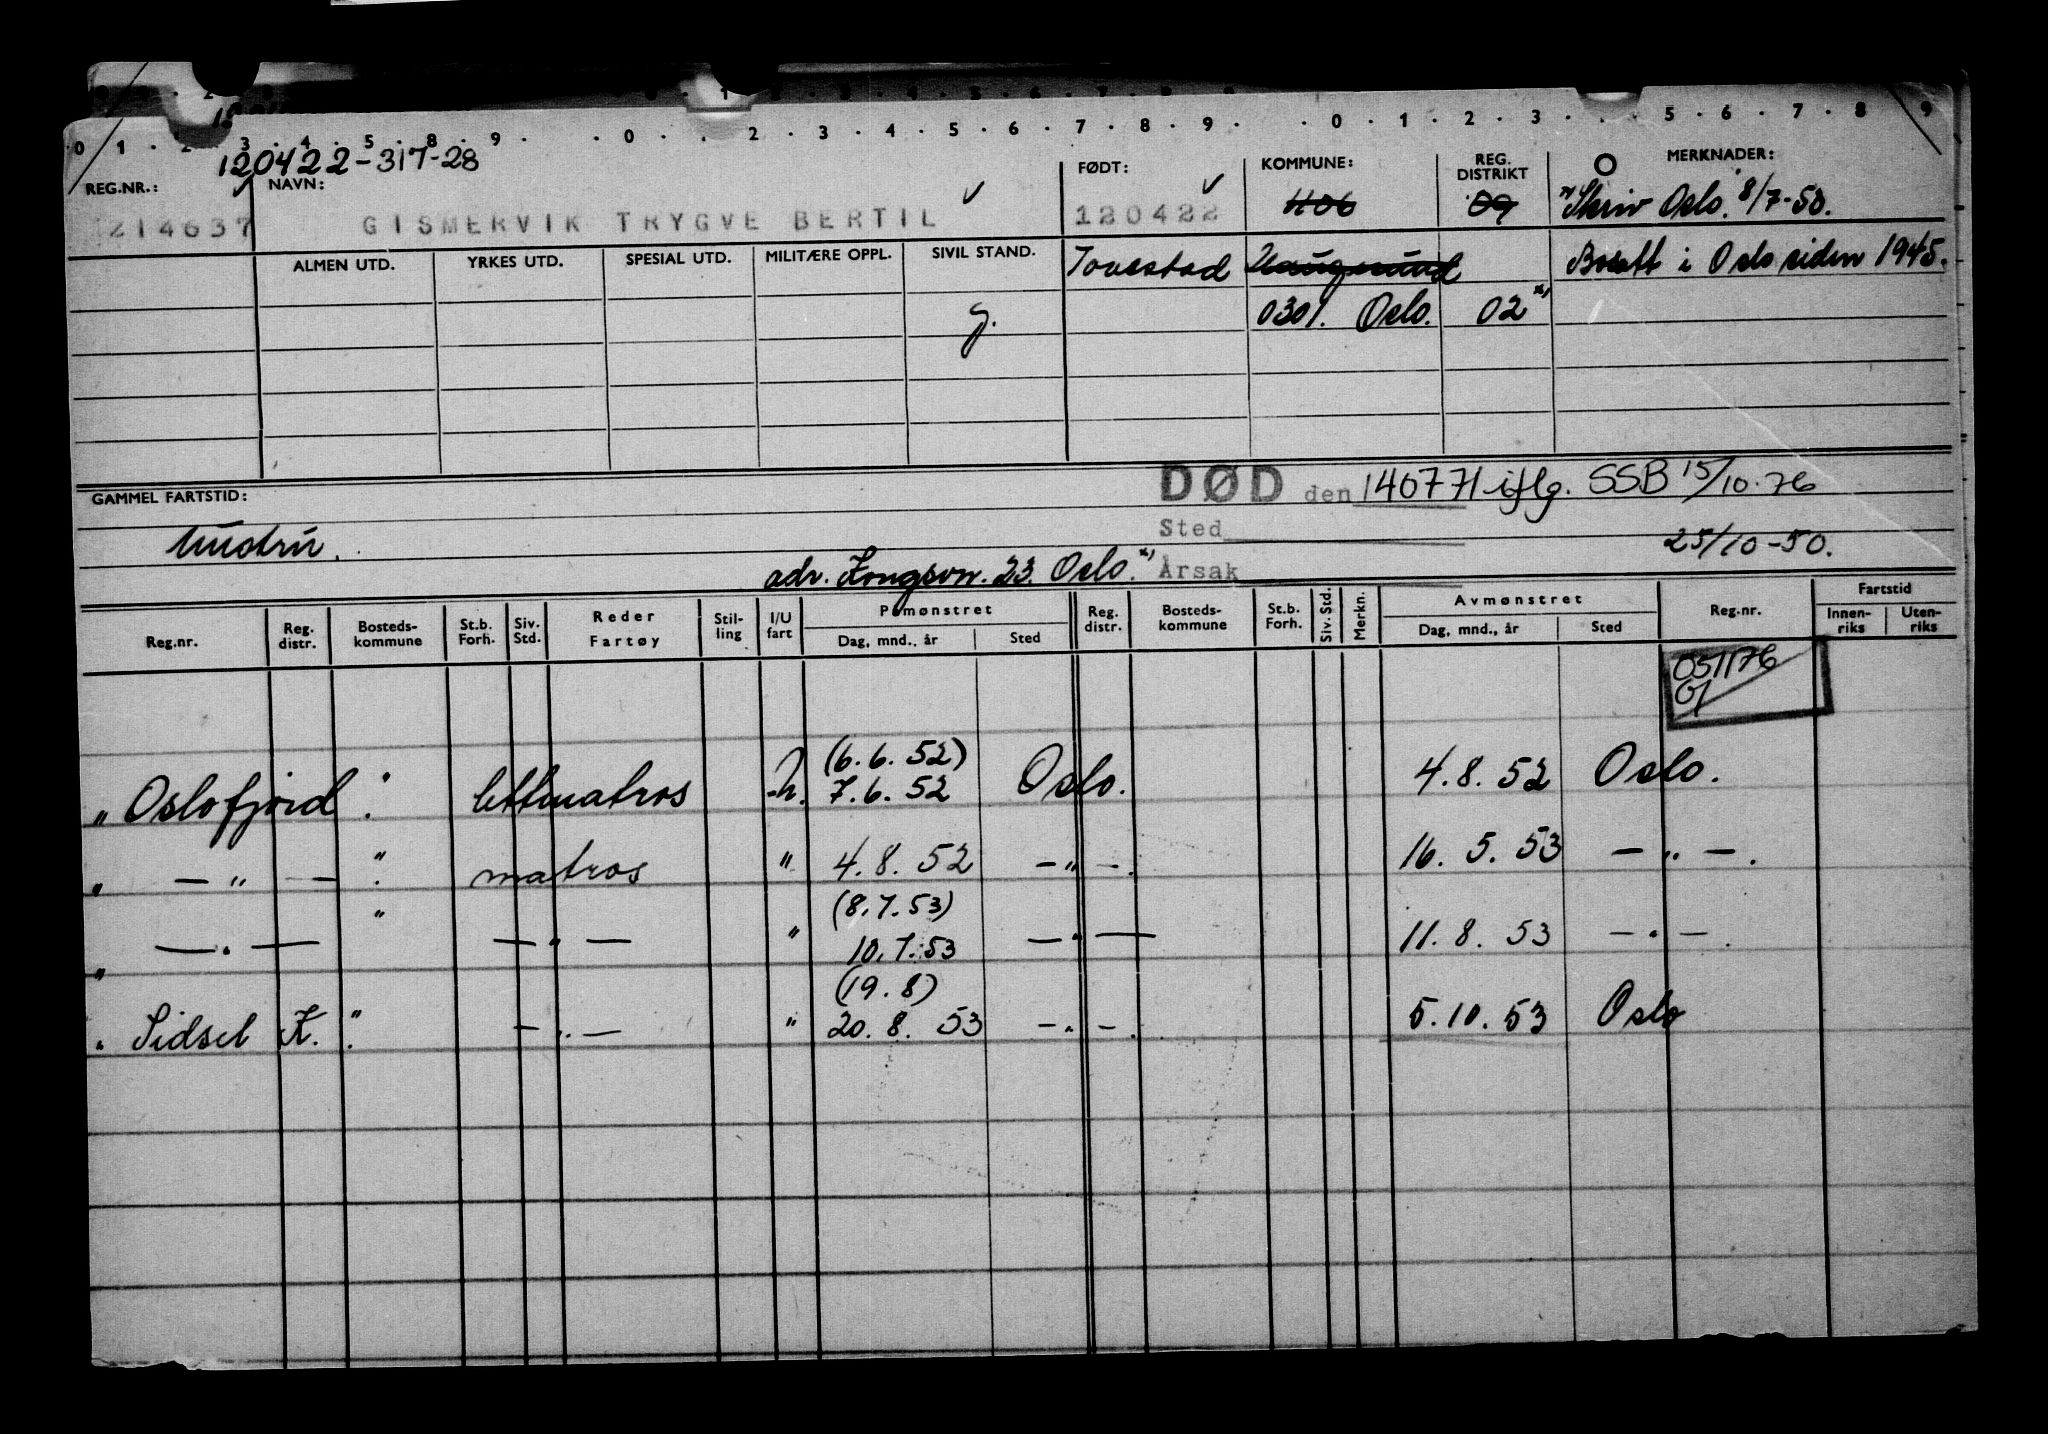 0 1 . 2 . 3 . 4 . 5 . 8 . 9 . . 0 . . 2 . 3 . 4 . 5 . 6 . 7 . 8 . 9 . . 0 . 1 . 2 . 3 . . 5 . 6 . 7 . 8 9
120422-317-28
REG.NR.: NAVN: FØDT: KOMMUNE: REG. DISTRIKT MERKNADER:
214637 GISMERVIK TRYGVE BERTIL 120422 1106 09 x) Skriv Oslo. 8/7-50.
ALMEN UTD. YRKES UTD. SPESIAL UTD. MILITÆRE OPPL. SIVIL STAND. Haugesund Bosatt i Oslo siden 1945.
g. 0301. Oslo. 02 x)
GAMMEL FARTSTID: DØD den 140771 iflg. SSB 15/10-76
Sted
25/10-50.
adr. 23. Oslo. x) Årsak
Reg.nr. Reg. distr. Bosteds-kommune St.b. Forh. Siv. Std. Reder Fartøy Stil-ling I/U fart Påmønstret Dag, mnd., år Sted Reg. distr. Bosteds-kommune St.b. Forh. Siv. Std. Merkn. Avmønstret Dag, mnd., år Sted Reg.nr. Fartstid Innen-riks Uten-riks
051176
(6.6.52)
" Oslofjord ". lettmatros 7.6.52 Oslo. 4.8.52 Oslo.
" — " — ". matros " 4.8.52 — " —. 16.5.53 — " —.
(8.7.53)
" — " — " — " — " 10.7.53 — " — 11.8.53 — " —.
(19.8)
" Sidsel K. ". — " — " 20.8.53 — " —. 5.10.53 Oslo